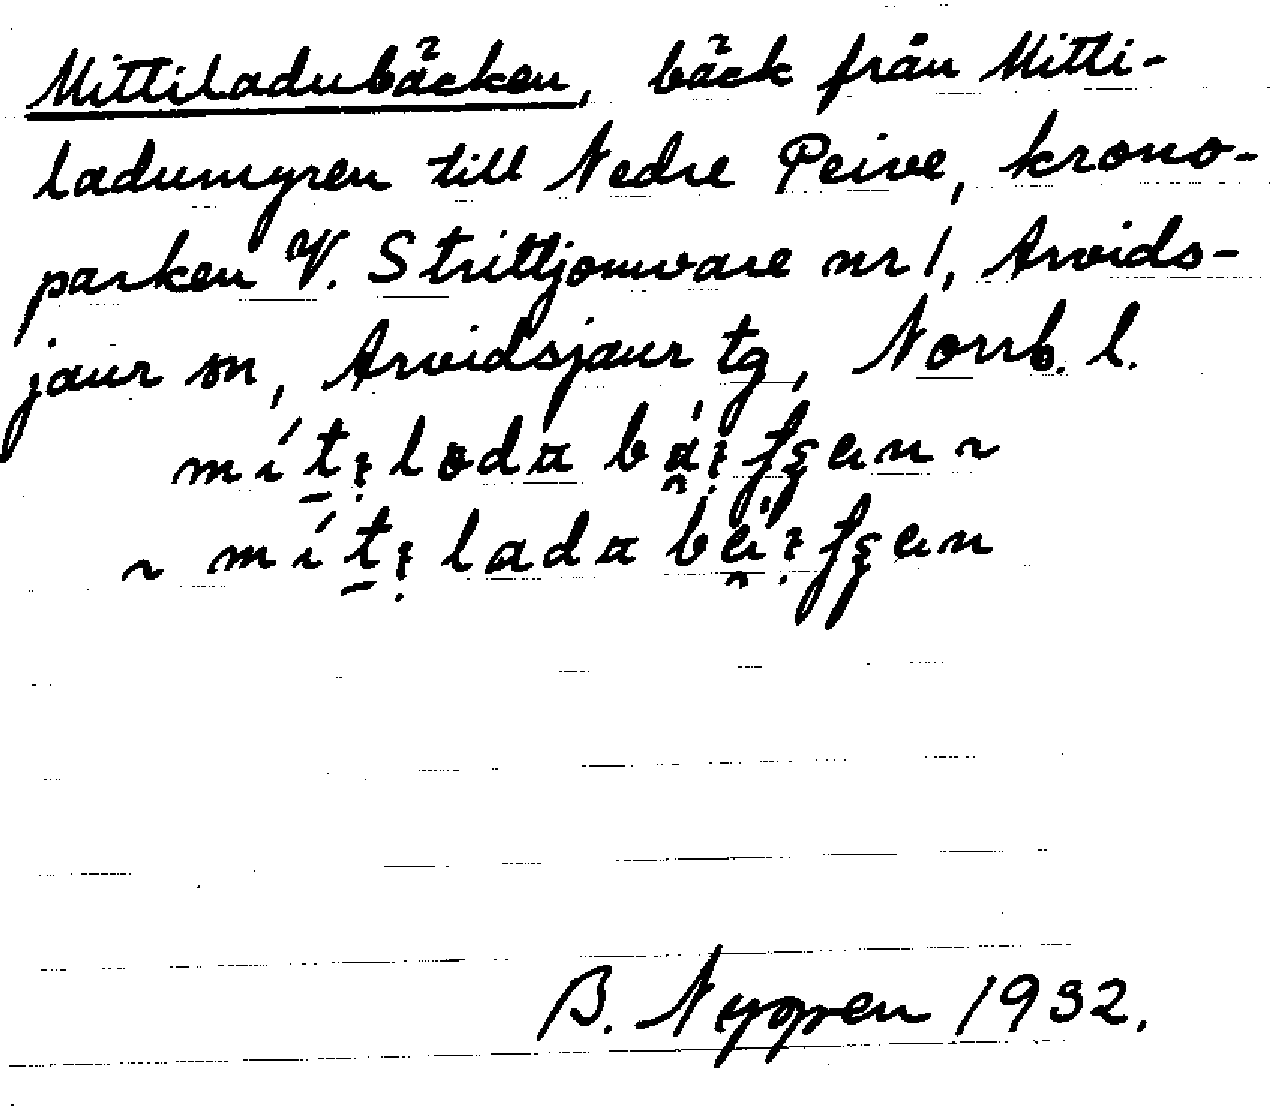 Mittiladubäcken, bäck från Mitti-
ladumyren till Nedre Peive, krono-
parken V. Strittjomvare nr 1, Arvids-
jaur sn, Arvidsjaur tg, Norrb. l.
B. Nygren 1932.